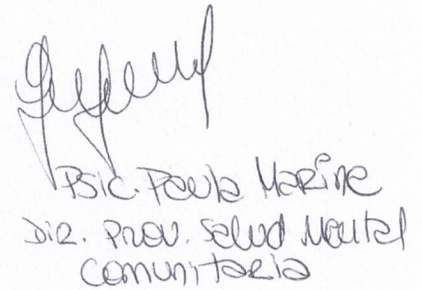 Psic. Paula Marine
Dir. Prov. Salud Mental
Comunitaria